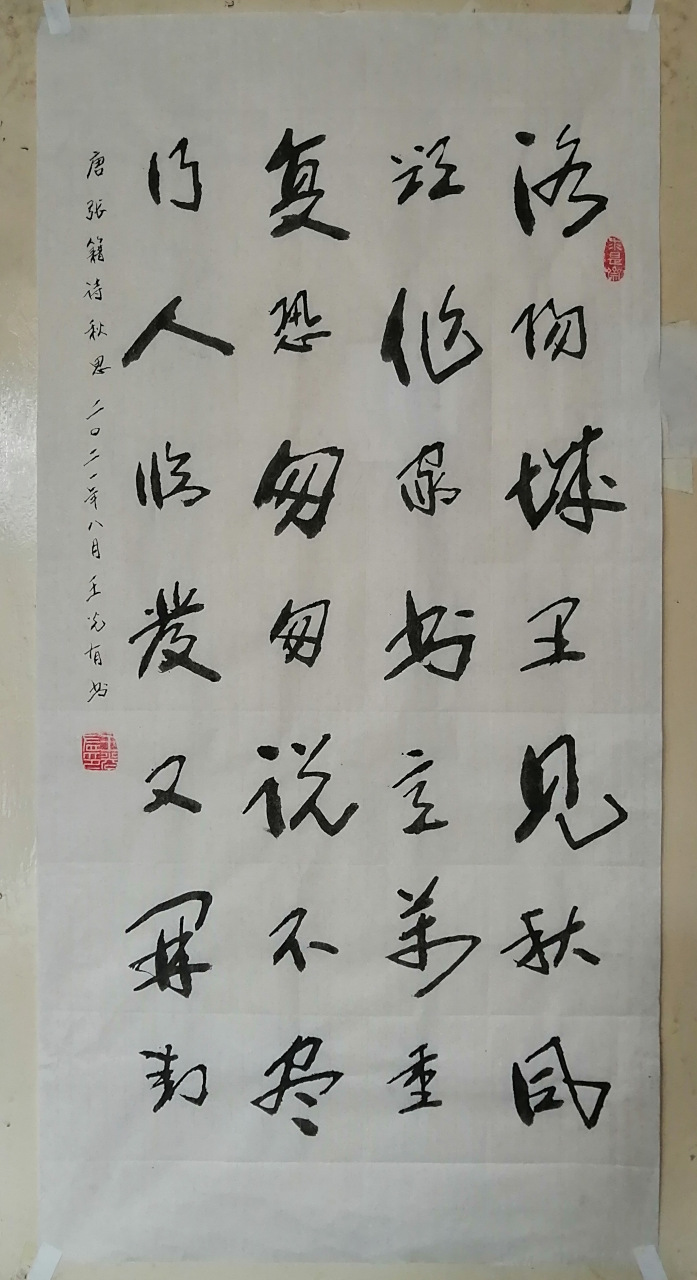 洛阳城里见秋风
欲作家书意萬重
复恐匆匆说不尽
行人临發又開封
唐張籍诗秋思 二〇二一年八月王光有书